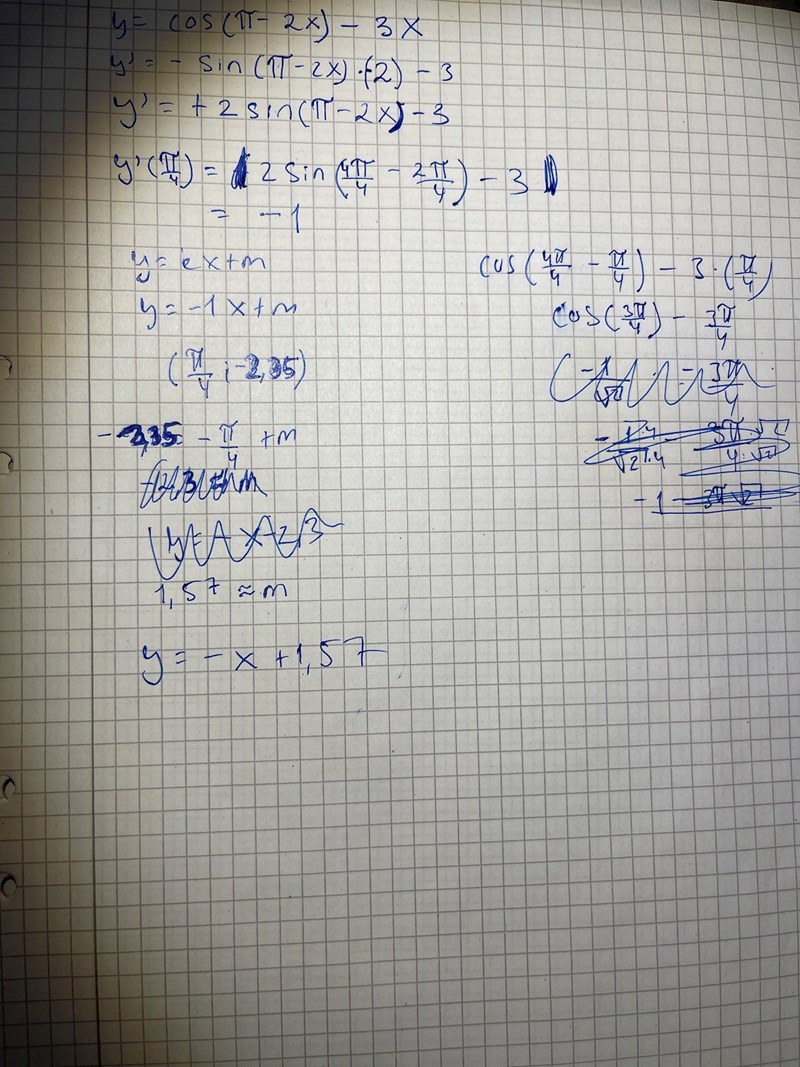 y = cos(π - 2x) - 3x
y' = - sin(π - 2x) · (-2) - 3
y' = + 2 sin(π - 2x) - 3
y'(π/4) = 2 sin(4π/4 - 2π/4) - 3
= -1
y = kx + m
y = -1x + m
(π/4 ; -2,35)
-2,35 = -π/4 + m
1,57 ≈ m
y = -x + 1,57
cos(4π/4 - π/4) - 3 · (π/4)
cos(3π/4) - 3π/4